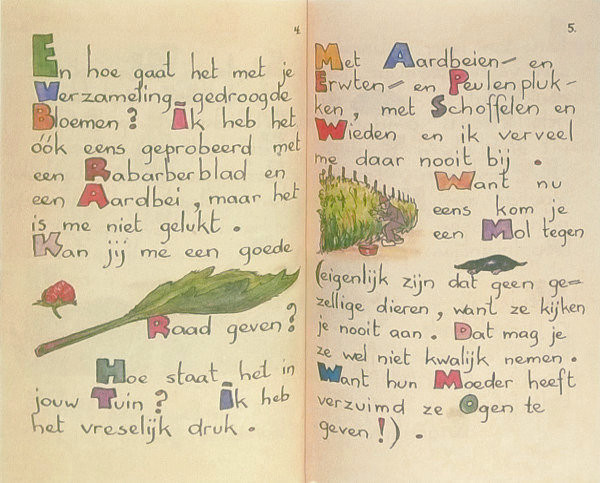 4.
En hoe gaat het met je
verzameling gedroogde
Bloemen? Ik heb het
óók eens geprobeerd met
een Rabarberblad en
een Aardbei, maar het
is me niet gelukt.
Kan jij me een goede
Raad geven?
Hoe staat het in
jouw Tuin? Ik heb
het vreselijk druk.
5.
Met Aardbeien- en
Erwten- en Peulenpluk-
ken, met Schoffelen en
Wieden en ik verveel
me daar nooit bij.
Want nu
eens kom je
een Mol tegen
(eigenlijk zijn dat geen ge-
zellige dieren, want ze kijken
je nooit aan. Dat mag je
ze wel niet kwalijk nemen.
Want hun Moeder heeft
verzuimd ze Ogen te
geven!).